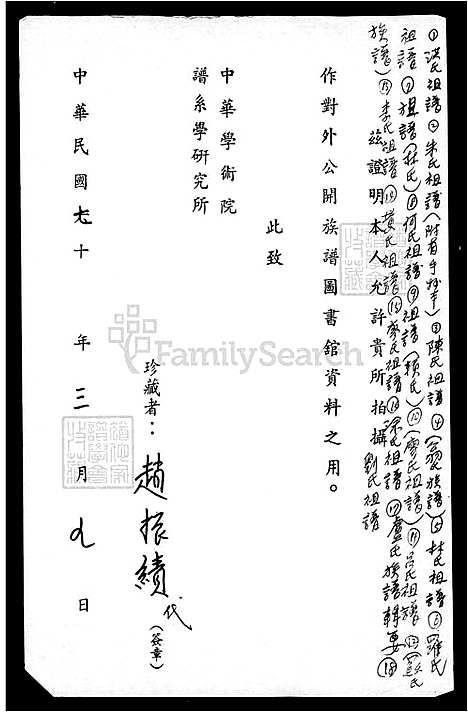 ①洪氏祖譜②朱氏祖譜(附有手抄本)③陳氏祖譜④(翁氏族譜)⑤林氏祖譜⑥羅氏
祖譜⑦祖譜(林氏)⑧何氏祖譜⑨祖譜(賴氏)⑩(廖氏祖譜)⑪呂氏祖譜⑫(蘇氏
族譜)⑬李氏祖譜⑭黃氏祖譜⑮廖氏祖譜⑯涂氏祖譜⑰盧氏族譜輯要⑱
劉氏祖譜
茲證明本人允許貴所拍攝
作對外公開族譜圖書館資料之用。
此致
中華學術院
譜系學研究所
珍藏者：趙振績代(簽章)
中華民國七十年三月九日
FamilySearch